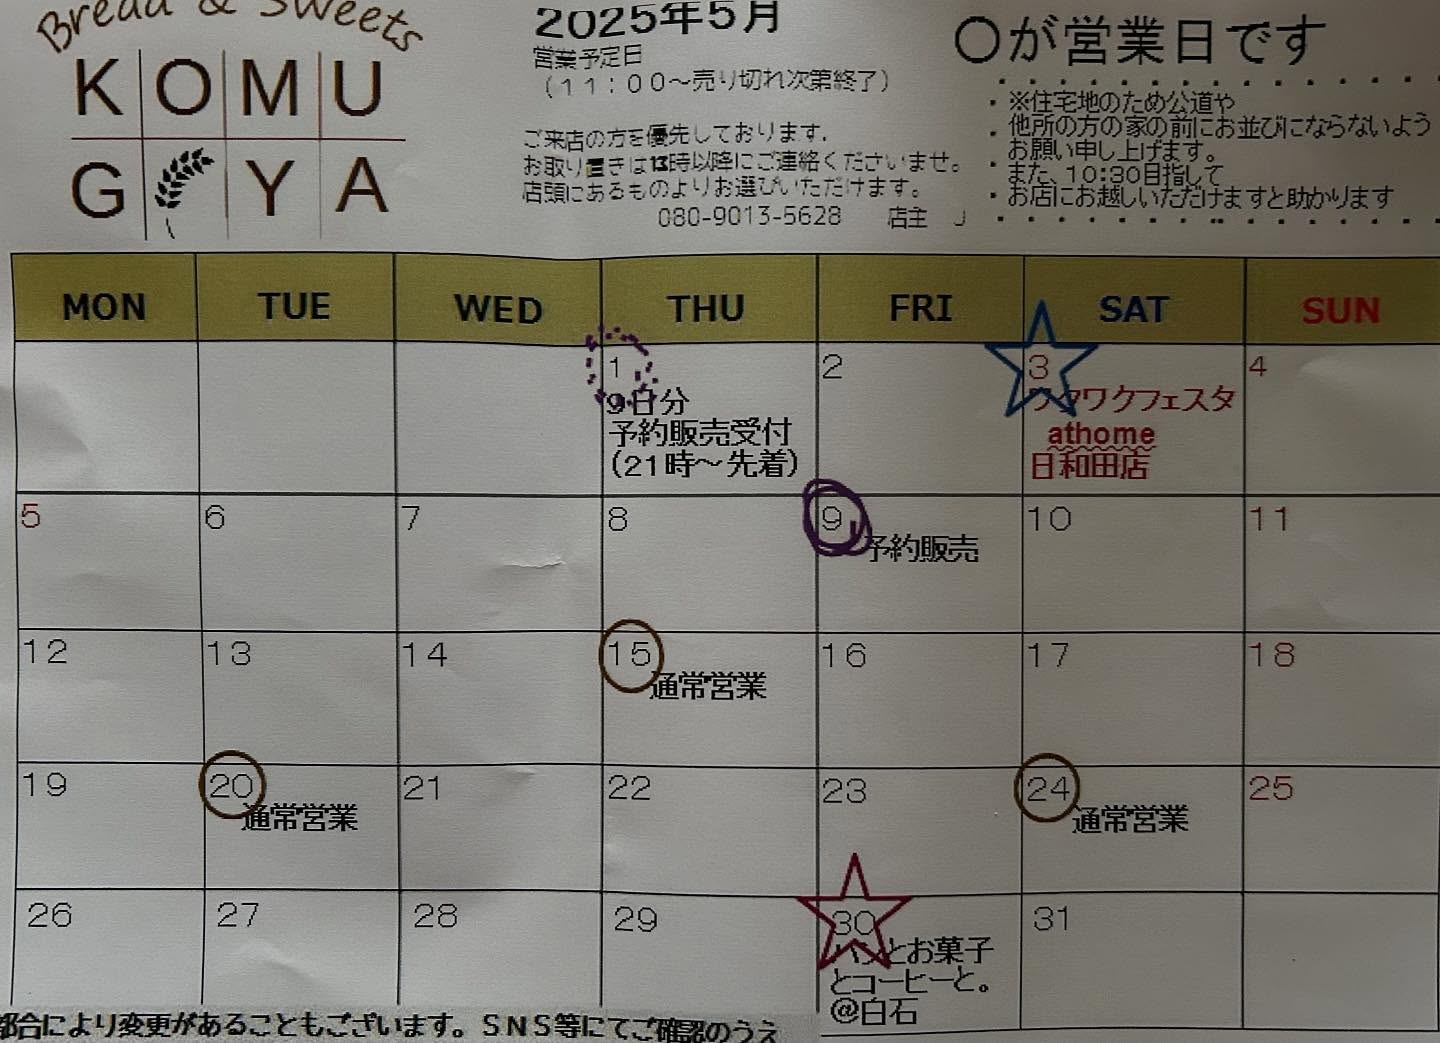 Bread & Sweets
KOMU
G YA
2025年5月
営業予定日
（11：00～売り切れ次第終了）
ご来店の方を優先しております.
お取り置きは13時以降にご連絡くださいませ。
店頭にあるものよりお選びいただけます。
080-9013-5628 店主
〇が営業日です
・※住宅地のため公道や
・他所の方の家の前にお並びにならないよう
・お願い申し上げます。
・また、10:30目指して
・お店にお越しいただけますと助かります
MON TUE WED THU FRI SAT SUN
1 2 3 4
9日分
予約販売受付
（21時～先着）
ワクワクフェスタ
athome
日和田店
5 6 7 8 9 10 11
予約販売
12 13 14 15 16 17 18
通常営業
19 20 21 22 23 24 25
通常営業 通常営業
26 27 28 29 30 31
パンとお菓子
とコーヒーと。
@白石
都合により変更があることもございます。SNS等にてご確認のうえ